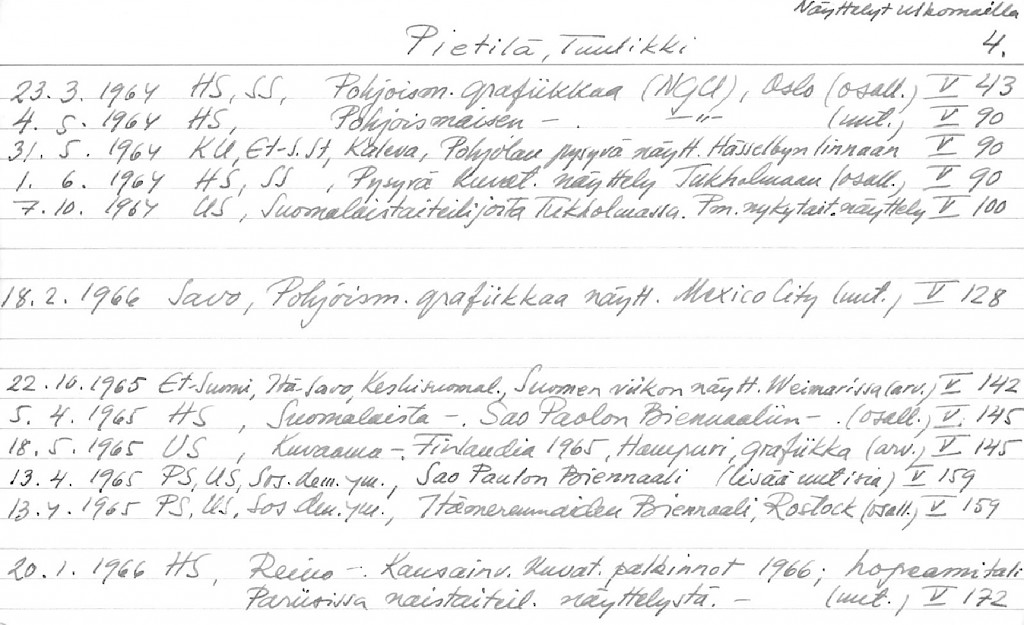 Näyttelyt ulkomailla
Pietilä, Tuulikki 4.
23.3.1964 HS, SS, Pohjoism. grafiikkaa (NGU), Oslo (osall.) V 43
4.5.1964 HS, Pohjoismaisen - . -"- (uut.) V 90
31.5.1964 KU, Et-S.St, Kaleva, Pohjolan pysyvä näytt. Hässelbyn linnaan V 90
1.6.1964 HS, SS , Pysyvä Kuvat. näyttely Tukholmaan (osall.) V 90
7.10.1964 US, Suomalaistaiteilijoita Tukholmassa. Pm. nykytait. näyttely V 100
18.2.1966 Savo, Pohjoism. grafiikkaa näytt. Mexico City (uut.) V 128
22.10.1965 Et-Suomi, Itä-Savo, Keskisuomal., Suomen viikon näytt. Weimarissa (arv.) V 142
5.4.1965 HS , Suomalaista -. Sao Paolon Biennaaliin - . (osall.) V 145
18.5.1965 US , Kuvaama -. Finlandia 1965, Hampuri, grafiikka (arv.) V 145
13.4.1965 PS, US, Sos.dem.ym., Sao Paulon Biennaali (lisää uutisia) V 159
13.4.1965 PS, US, Sos dem.ym., Itämerenmaiden Biennaali, Rostock (osall.) V 159
20.1.1966 HS, Reino -. Kansainv. Kuvat. palkinnot 1966; hopeamitali
Pariisissa naistaiteil. näyttelystä. - (uut.) V 172